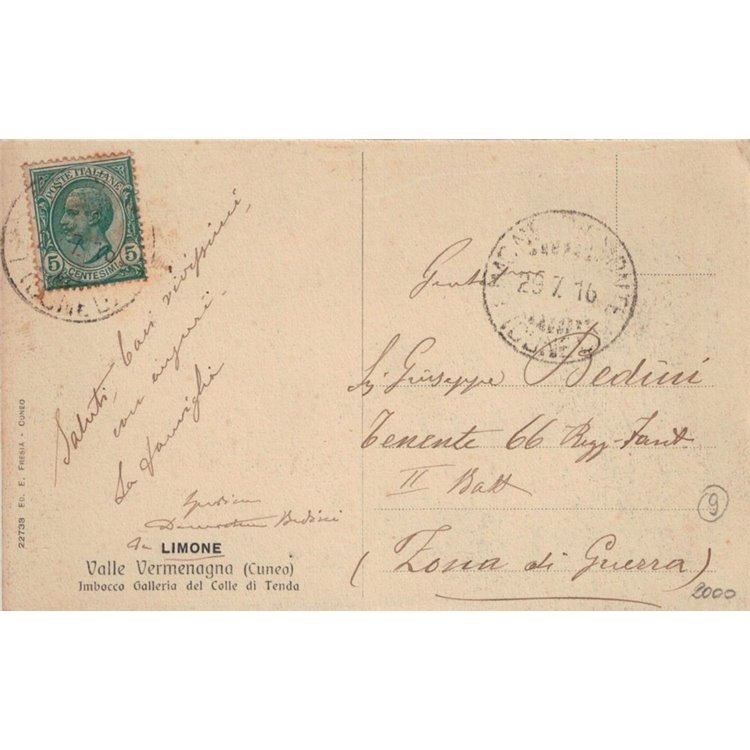 POSTE ITALIANE
5 CENTESIMI 5
29.7.16
Saluti, baci vivissimi,
con auguri
La famiglia
Bedini
da LIMONE
Valle Vermenagna (Cuneo)
Imbocco Galleria del Colle di Tenda
22733 ED. E. FRESIA - CUNEO
Sig. Giuseppe Bedini
Tenente 66 Regg. Fant
II Batt
(Zona di Guerra)
9
2000